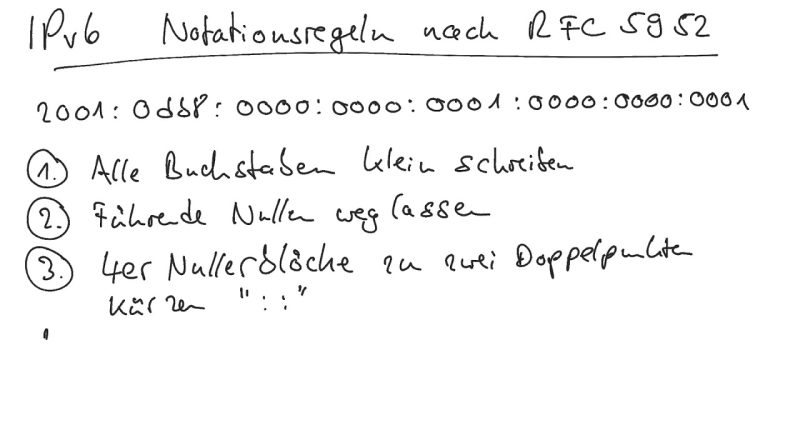 IPv6 Notationsregeln nach RFC 5952
2001:0db8:0000:0000:0001:0000:0000:0001
1. Alle Buchstaben klein schreiben
2. Führende Nullen weglassen
3. 4er Nullerblöcke zu zwei Doppelpunkten
kürzen "::"